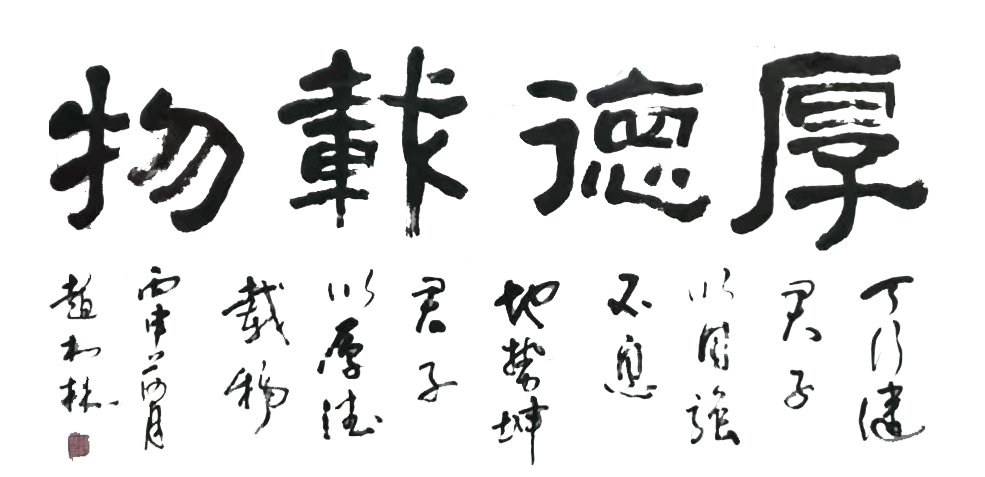 厚德載物
天行健
君子
以自強
不息
地勢坤
君子
以厚德
載物
丙申荷月
趙林